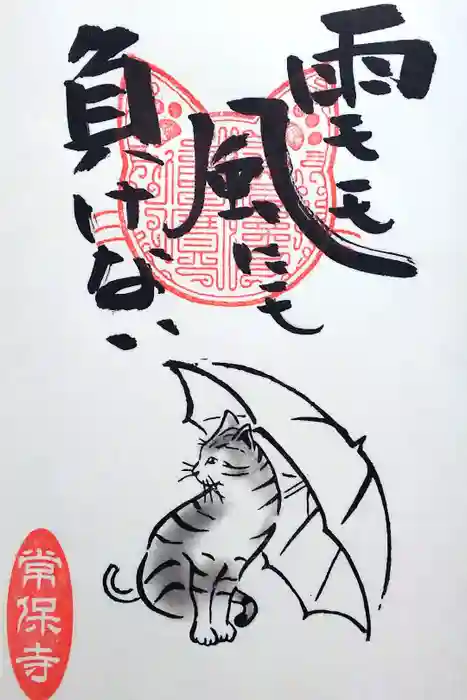 雨にも
風にも
負けない
常保寺